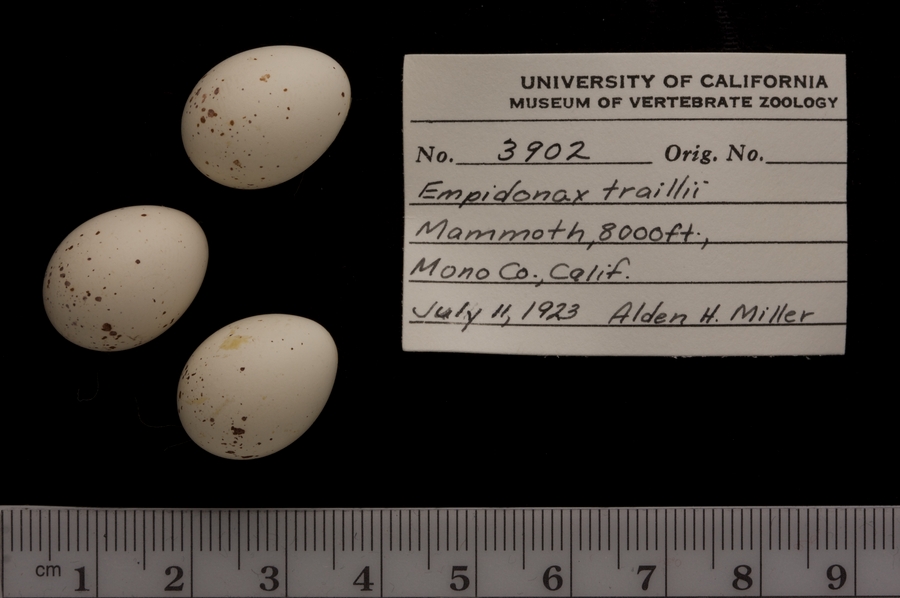 UNIVERSITY OF CALIFORNIA
MUSEUM OF VERTEBRATE ZOOLOGY
No. 3902 Orig. No.
Empidonax traillii
Mammoth, 8000ft.,
Mono Co., Calif.
July 11, 1923 Alden H. Miller
cm 1 2 3 4 5 6 7 8 9